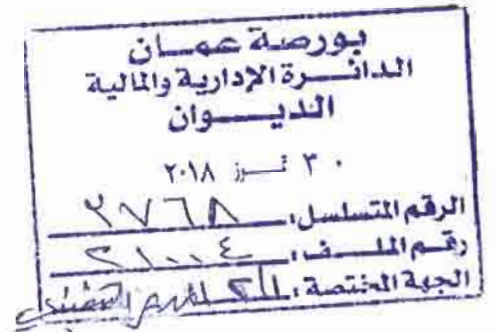 بورصة عمان
الدائرة الإدارية والمالية
الديوان
٣٠ تموز ٢٠١٨
الرقم المتسلسل: ٢٧٦٨
رقم الملف: ٢١٠٠٤
الجهة المختصة: